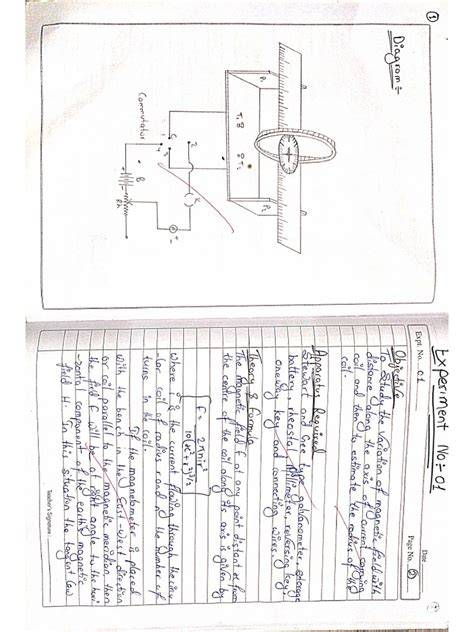 1
Diagram :-
P1
P2
T1
T2
C
1
2
3
4
K
B
Rh
+
-
Commutator
Date
Expt. No. 01
Page No. 2
Experiment No:- 01
Objective
To study the variation of magnetic field with
distance along the axis of current carrying
coil and then to estimate the radius of the
coil.
Apparatus Required
Stewart and Gee type galvanometer, storage
battery, rheostat, reversing key,
one way key and connecting wires.
Theory & Formula
The magnetic field F at any point distant x from
the centre of the coil along its axis is given by
where i is the current flowing through the
-lar coil of radius r and n is the number of
turns in the coil.
If the magnetometer is placed
with the bench in the East-West direction
or coil parallel to the magnetic meridian then
the field F will be at right angle to the hori
-zental component of the earth's magnetic
field H. In this situation the tangent law
Teacher's Signature